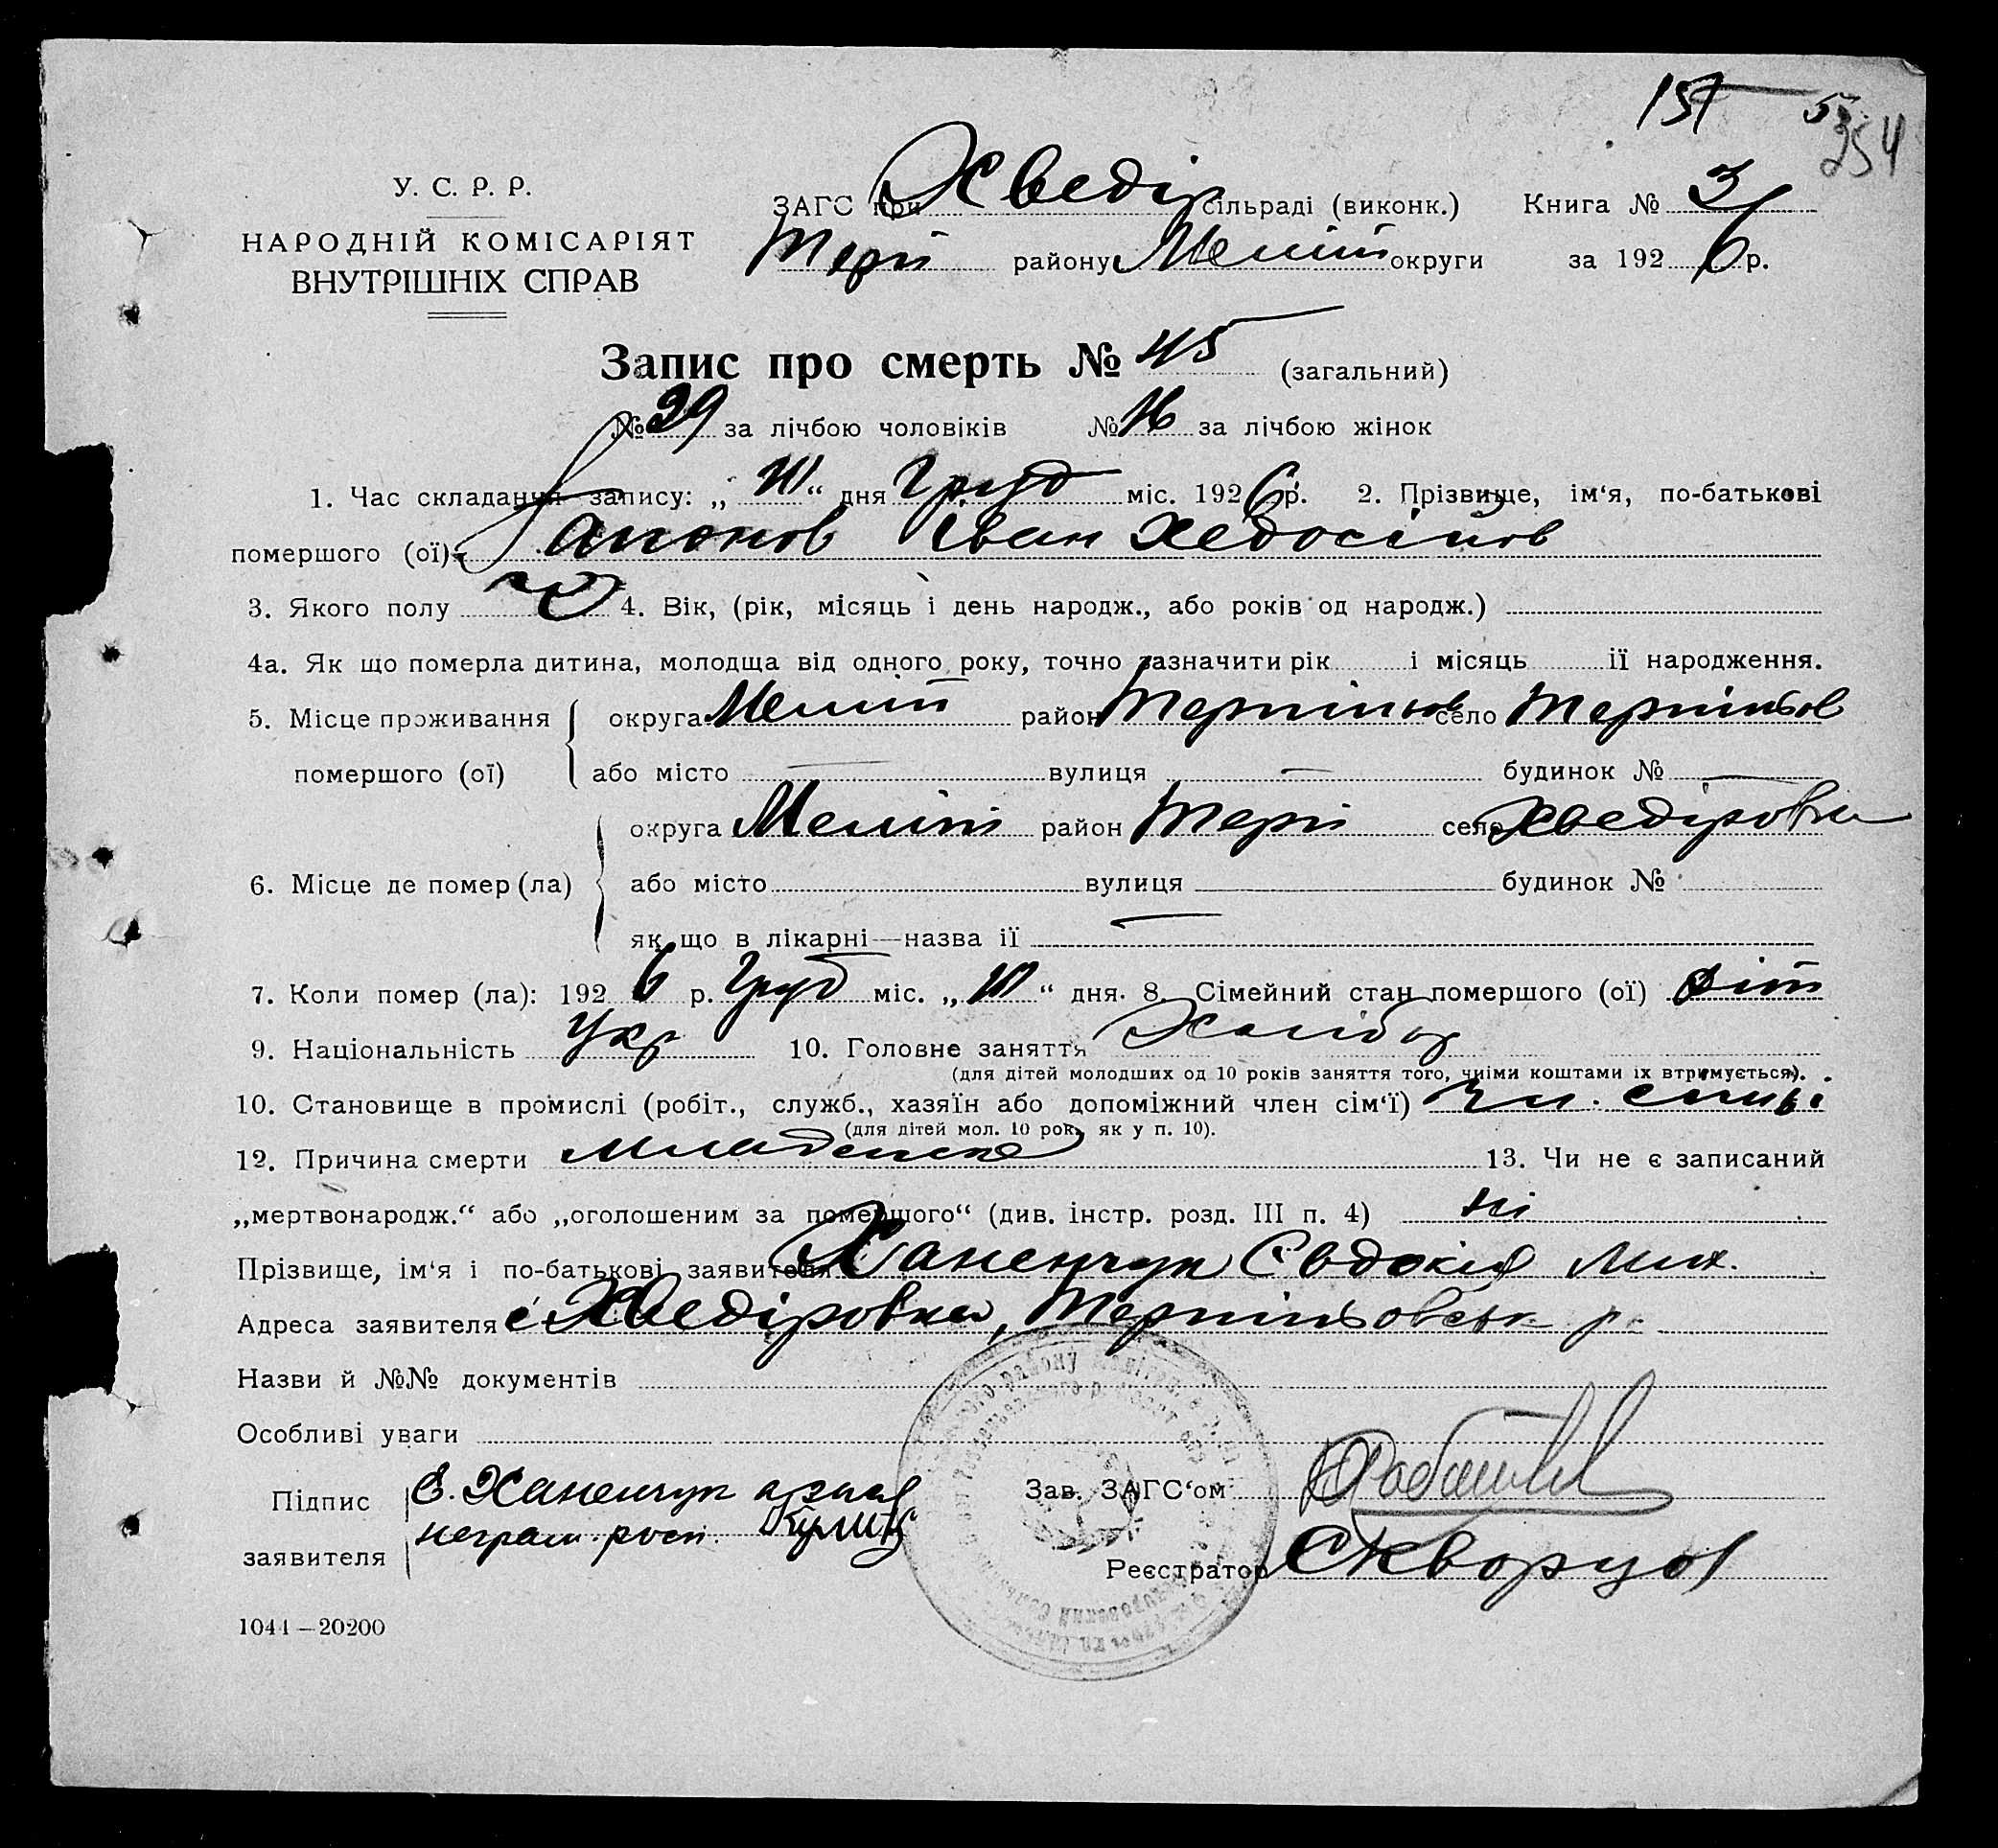 254
У. С. Р. Р.
НАРОДНІЙ КОМІСАРІЯТ
ВНУТРІШНІХ СПРАВ
ЗАГС при Хведір сільраді (виконк.) Книга № 3
Терп району Меліт округи за 1926 р.
Запис про смерть № 45 (загальний)
№ 29 за лічбою чоловіків № 16 за лічбою жінок
1. Час складання запису: „ “ дня Груд міс. 1926 р. 2. Прізвище, ім‘я, по-батькові
помершого (ої) Гапонов Іван Хедосіїов
3. Якого полу ч 4. Вік, (рік, місяць і день народж., або років од народж.)
4а. Як що померла дитина, молодща від одного року, точно зазначити рік і місяць її народження.
5. Місце проживання округа Меліт район Терпіньов село Терпіньов
помершого (ої) або місто — вулиця — будинок № —
округа Меліт район Терп село Хведіровка
6. Місце де помер (ла) або місто вулиця будинок №
як що в лікарні—назва її —
7. Коли помер (ла): 1926 р. Груд міс. „ “ дня. 8. Сімейний стан помершого (ої) діт
9. Національність Укр 10. Головне заняття Хлібор
(для дітей молодших од 10 років заняття того, чиїми коштами їх втримується).
10. Становище в промислі (робіт., служб., хазяїн або допоміжний член сім‘ї) чл. сим‘ї
(для дітей мол. 10 рок. як у п. 10).
12. Причина смерти младенске 13. Чи не є записаний
„мертвонародж.“ або „оголошеним за помершого“ (див. інстр. розд. III п. 4) ні
Прізвище, ім‘я і по-батькові заявителя Ханенчук Євдокія Мих.
Адреса заявителя с Хведіровка, Терпіньовськ р.
Назви й №№ документів
Особливі уваги
Підпис Е. Ханенчук а за нея
заявителя неграм. росп.
Зав. ЗАГС‘ом
Реєстратор Скворцов
1044—20200